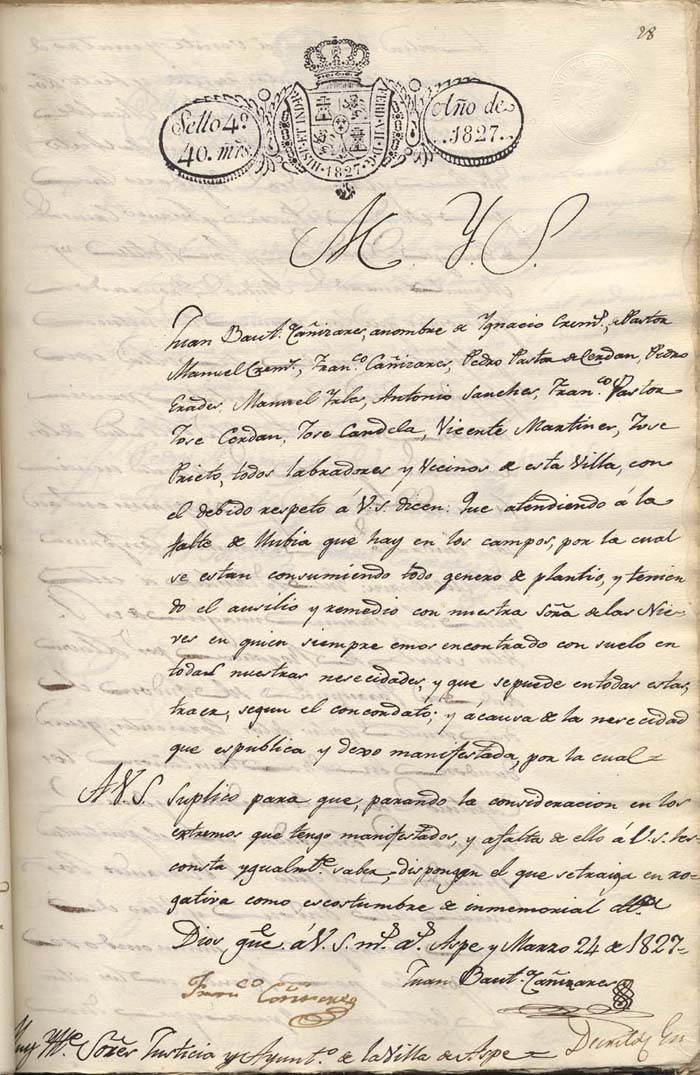 28
Sello 4º
40. mrs
FERD. VII. D. G. HISP. ET IND. R. 1827.
Año de
1827.
M. Y. S.
Juan Baut.ª Cañizares, anombre de Ygnacio Crem.s, Pastor
Manuel Crem.s, Fran.co Cañizares, Pedro Pastor de Cerdan, Pedro
Erades, Manuel Yrles, Antonio Sanches, Fran.co Pastor
Jose Cerdan, Jose Candela, Vicente Martinez, Jose
Prieto, todos labradores y Vecinos de esta Villa, con
el debido respeto á V.S. dicen: Que atendiendo á la
falte de llubia que hay en los campos, por la cual
se estan consumiendo todo genero de plantio, y tenien
do el ausilio y remedio con nuestra Soñra de las Nie-
ves en quien siempre emos encontrado con suelo en
todas nuestras nesecidades, y que sepuede en todas estas,
traer, segun el concordato; y ácausa de la nesecidad
que espublica y devo manifestada, por la cual=
A V.S. Suplico para que, parando la consideracion en los
estremos que tengo manifestados, y afalta de ello á V.S. les
consta ygualm.te saber, dispongan el que setraiga en ro-
gativa como escostumbre de inmemorial
Dios gue. á V.S. m.s a.s Aspe y Marzo 24 de 1827=
Fran.co Cañizares
Juan Baut.ª Cañizares
Muy Ytte. Soñres Justicia y Ayunt.o de la Villa de Aspe =